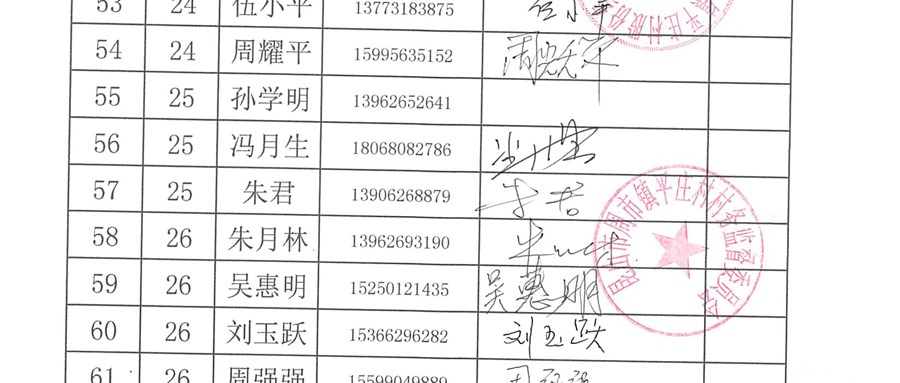 53 24 伍小平 13773183875 伍小平
54 24 周耀平 15995635152 周耀平
55 25 孙学明 13962652641
56 25 冯月生 18068082786
57 25 朱君 13906268879 朱君
58 26 朱月林 13962693190
59 26 吴惠明 15250121435 吴惠明
60 26 刘玉跃 15366296282 刘玉跃
61 26 周强强 15599049889
昆山市周市镇平庄村村务监督委员会